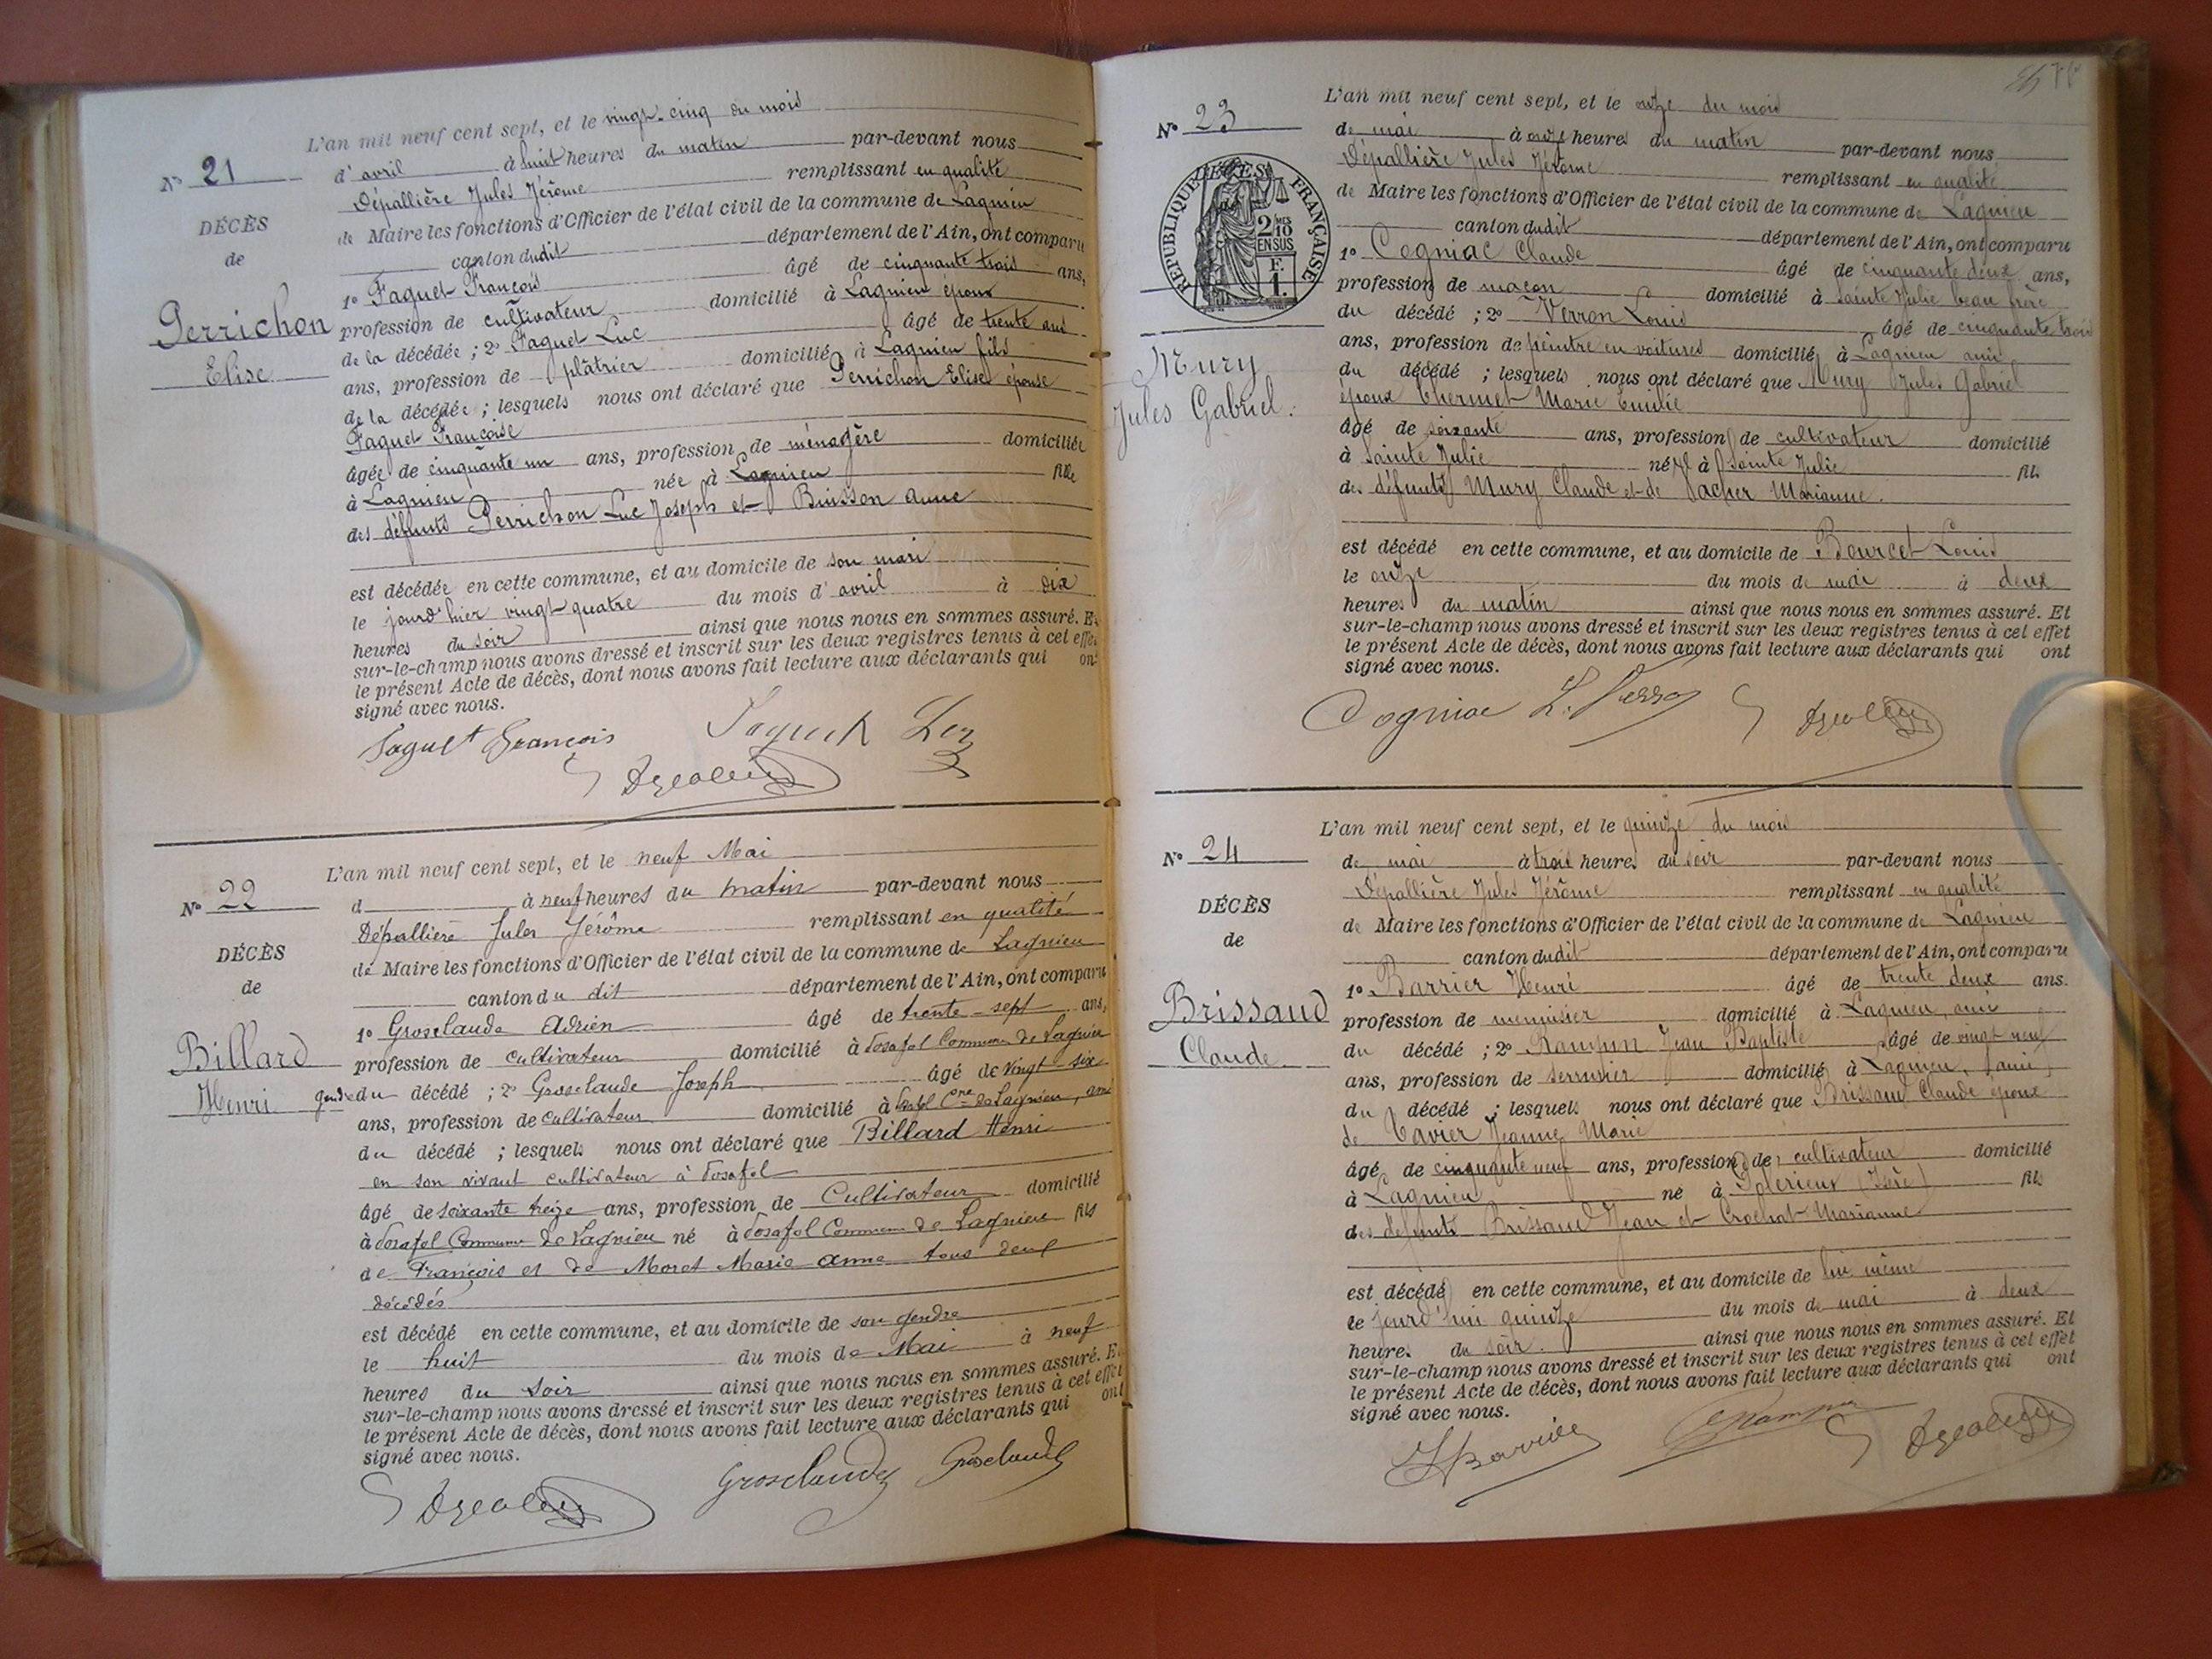 L'an mil neuf cent sept, et le vingt-cinq du mois
N° 21
d'avril à huit heures du matin par-devant nous
Dépallière Jules Jérôme remplissant en qualité
DÉCÈS
de Maire les fonctions d'Officier de l'état civil de la commune de Lagnieu
de
canton dudit département de l'Ain, ont comparu
1° Faguet François âgé de cinquante trois ans,
Perrichon
profession de cultivateur domicilié à Lagnieu époux
Elise
de la décédée ; 2° Faguet Luc âgé de trente ans
ans, profession de plâtrier domicilié à Lagnieu fils
de la décédée ; lesquels nous ont déclaré que Perrichon Elise épouse
Faguet Françoise
âgée de cinquante un ans, profession de ménagère domiciliée
à Lagnieu née à Lagnieu fille
des défunts Perrichon Luc Joseph et Buisson Anne
est décédée en cette commune, et au domicile de son mari
le jourd'hier vingt-quatre du mois d'avril à dix
heures du soir ainsi que nous nous en sommes assuré. Et
sur-le-champ nous avons dressé et inscrit sur les deux registres tenus à cet effet
le présent Acte de décès, dont nous avons fait lecture aux déclarants qui ont
signé avec nous.
Faguet François Faguet Luc
L'an mil neuf cent sept, et le neuf Mai
N° 22
d à neuf heures du matin par-devant nous
Dépallière Jules Jérôme remplissant en qualité
DÉCÈS
de Maire les fonctions d'Officier de l'état civil de la commune de Lagnieu
de
canton du dit département de l'Ain, ont comparu
1° Grosclaude Adrien âgé de trente-sept ans,
Billard
profession de cultivateur domicilié à Posafol Commune de Lagnieu
Henri
gendre du décédé ; 2° Grosclaude Joseph âgé de vingt-six
ans, profession de cultivateur domicilié à Posafol Cne de Lagnieu, ami
du décédé ; lesquels nous ont déclaré que Billard Henri
en son vivant cultivateur à Posafol
âgé de soixante treize ans, profession de Cultivateur domicilié
à Posafol Commune de Lagnieu né à Posafol Commune de Lagnieu fils
de François et de Moret Marie Anne tous deux
décédés
est décédé en cette commune, et au domicile de son gendre
le huit du mois de Mai à neuf
heures du soir ainsi que nous nous en sommes assuré. Et
sur-le-champ nous avons dressé et inscrit sur les deux registres tenus à cet effet
le présent Acte de décès, dont nous avons fait lecture aux déclarants qui ont
signé avec nous.
Grosclaude Grosclaude
L'an mil neuf cent sept, et le onze du mois
N° 23
de mai à onze heures du matin par-devant nous
Dépallière Jules Jérôme remplissant en qualité
RÉPUBLIQUE FRANÇAISE
2 MES
10
EN SUS
F.
1.
de Maire les fonctions d'Officier de l'état civil de la commune de Lagnieu
canton dudit département de l'Ain, ont comparu
1° Cogniac Claude âgé de cinquante deux ans,
profession de maçon domicilié à Sainte Julie beau frère
du décédé ; 2° Verron Louis âgé de cinquante trois
ans, profession de peintre en voitures domicilié à Lagnieu ami
Mury
Jules Gabriel.
du décédé ; lesquels nous ont déclaré que Mury Jules Gabriel
époux Thermet Marie Emilie
âgé de soixante ans, profession de cultivateur domicilié
à Sainte Julie né à Sainte Julie fils
des défunts Mury Claude et de Vacher Marianne.
est décédé en cette commune, et au domicile de Bourcet Louis
le onze du mois de mai à deux
heures du matin ainsi que nous nous en sommes assuré. Et
sur-le-champ nous avons dressé et inscrit sur les deux registres tenus à cet effet
le présent Acte de décès, dont nous avons fait lecture aux déclarants qui ont
signé avec nous.
Cogniac L. Verron
L'an mil neuf cent sept, et le quinze du mois
N° 24
de mai à trois heures du soir par-devant nous
Dépallière Jules Jérôme remplissant en qualité
DÉCÈS
de Maire les fonctions d'Officier de l'état civil de la commune de Lagnieu
de
canton dudit département de l'Ain, ont comparu
1° Barrier Henri âgé de trente deux ans.
Brissaud
profession de menuisier domicilié à Lagnieu, ami
Claude
du décédé ; 2° Rampon Jean Baptiste âgé de vingt neuf
ans, profession de serrurier domicilié à Lagnieu, ami,
du décédé ; lesquels nous ont déclaré que Brissaud Claude époux
de Tavier Jeanne Marie
âgé de cinquante neuf ans, profession de cultivateur domicilié
à Lagnieu né à Solérieux (Isère) fils
des défunts Brissaud Jean et Crochat Marianne
est décédé en cette commune, et au domicile de lui même
le jourd'hui quinze du mois de mai à deux
heures du soir. ainsi que nous nous en sommes assuré. Et
sur-le-champ nous avons dressé et inscrit sur les deux registres tenus à cet effet
le présent Acte de décès, dont nous avons fait lecture aux déclarants qui ont
signé avec nous.
H Barrier Rampon